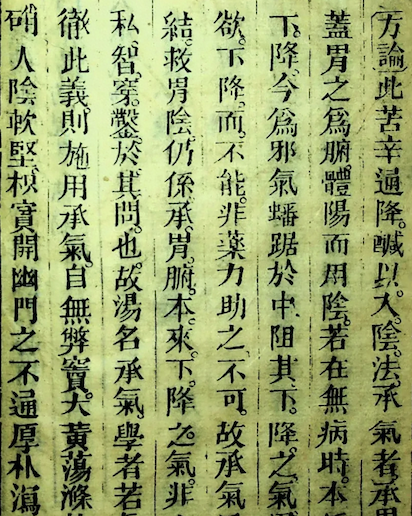 方論此苦辛通降。醎以入陰。法。承氣者。承胃
蓋胃之爲腑。體陽而用陰。若在無病時。本
下降。今爲邪氣蟠踞於中。阻其下降之氣
欲下降。而不能。非藥力助之不可。故承氣
結。救胃陰。仍係承胃腑。本來下降之氣。非
私智。穿鑿於其間也。故湯名承氣。學者若
徹此義。則施用承氣。自無弊竇。大黃蕩滌
硝入陰軟堅。枳實開幽門之不通。厚朴瀉